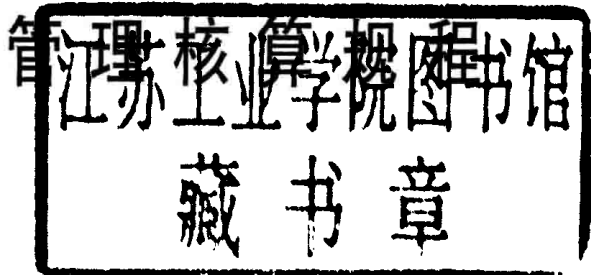 管理核算规程
江苏工业学院图书馆
藏书章